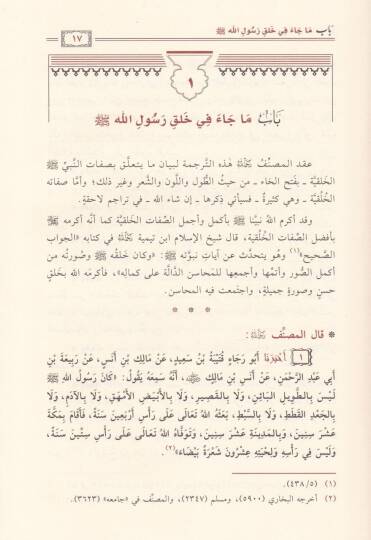 بَابُ مَا جَاءَ فِي خَلقِ رَسُولِ اللَّه ﷺ
١٧
١
بَابُ مَا جَاءَ فِي خَلقِ رَسُولِ اللَّه ﷺ
عقد المصنِّف رَحِمَهُ اللهُ هذه التَّرجمة لبيان ما يتعلَّق بصفات النَّبيِّ ﷺ
الخَلقيَّة ـ بفتح الخاء ـ من حيثُ الطُّول واللَّون والشَّعر وغير ذلك؛ وأمَّا صفاته
الخُلُقيَّة ـ وهي كثيرةٌ ـ فسيأتي ذِكرها ـ إن شاء الله ـ في تراجم لاحقةٍ.
وقد أكرم اللهُ نبيَّنا ﷺ بأكمل وأجمل الصِّفات الخَلقيَّة كما أنَّه أكرمه ﷺ
بأفضل الصِّفات الخُلُقية، قال شيخ الإسلام ابن تيمية رَحِمَهُ اللهُ في كتابه «الجواب
الصَّحيح»(١) وهُو يتحدَّث عن آيات نبوَّته ﷺ: «وكان خَلقُه ﷺ وصُورتُه من
أكمل الصُّور وأتمِّها وأجمعِها للمَحاسن الدَّالَّة على كماله»، فأكرمَه الله بخَلقٍ
حسنٍ وصورةٍ جميلةٍ، واجتَمعت فيه المحاسن.
* * *
* قال المصنِّف رَحِمَهُ اللهُ:
١ أَخْبَرَنَا أَبُو رَجَاءٍ قُتَيْبَةُ بْنُ سَعِيدٍ، عَنْ مَالِكِ بْنِ أَنَسٍ، عَنْ رَبِيعَةَ بْنِ
أَبِي عَبْدِ الرَّحْمَنِ، عَنْ أَنَسِ بْنِ مَالِكٍ رَضِيَ اللهُ عَنْهُ، أَنَّهُ سَمِعَهُ يَقُولُ: «كَانَ رَسُولُ اللهِ ﷺ
لَيْسَ بِالطَّوِيلِ البَائِنِ، وَلَا بِالقَصِيرِ، وَلَا بِالأَبْيَضِ الأَمْهَقِ، وَلَا بِالآدَمِ، وَلَا
بِالجَعْدِ القَطَطِ، وَلَا بِالسَّبْطِ، بَعَثَهُ اللهُ تَعَالَى عَلَى رَأْسِ أَرْبَعِينَ سَنَةً، فَأَقَامَ بِمَكَّةَ
عَشْرَ سِنِينَ، وَبِالمَدِينَةِ عَشْرَ سِنِينَ، وَتَوَفَّاهُ اللهُ تَعَالَى عَلَى رَأْسِ سِتِّينَ سَنَةً،
وَلَيْسَ فِي رَأْسِهِ وَلِحْيَتِهِ عِشْرُونَ شَعْرَةً بَيْضَاءَ»(٢).
(١) (٤٣٨/٥).
(٢) أخرجه البخاري (٥٩٠٠)، ومسلم (٢٣٤٧)، والمصنِّف في «جامعه» (٣٦٢٣).